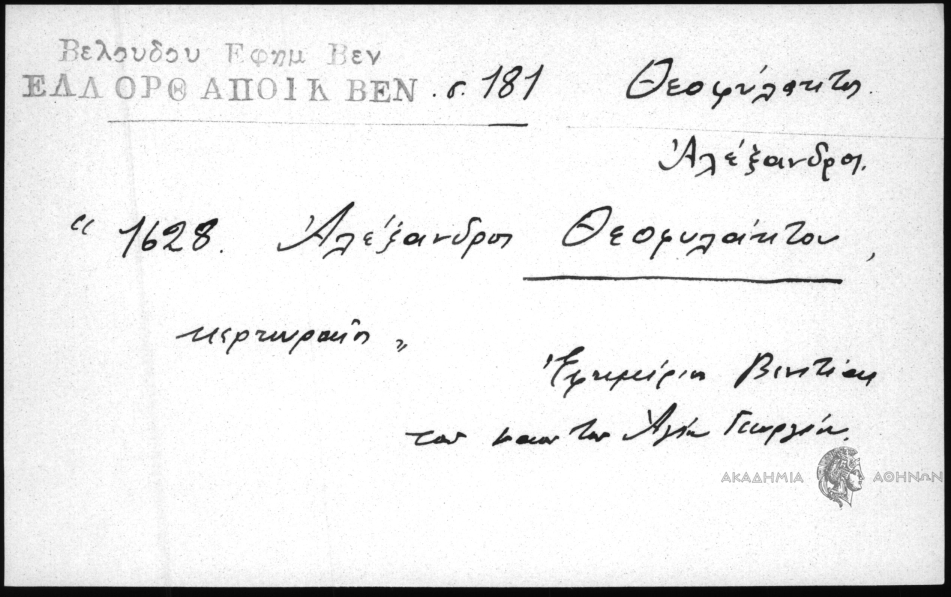 Βελούδου Εφημ Βεν
ΕΛΛ ΟΡΘ ΑΠΟΙΚ ΒΕΝ . σ. 181
Θεοφύλακτος.
Ἀλέξανδρος.
“ 1628. Ἀλέξανδρος Θεοφυλάκτου,
κερκυραῖος „
Ἐφημέριοι Βενετίας
του ναου του Ἁγίου Γεωργίου.
ΑΚΑΔΗΜΙΑ ΑΘΗΝΩΝ